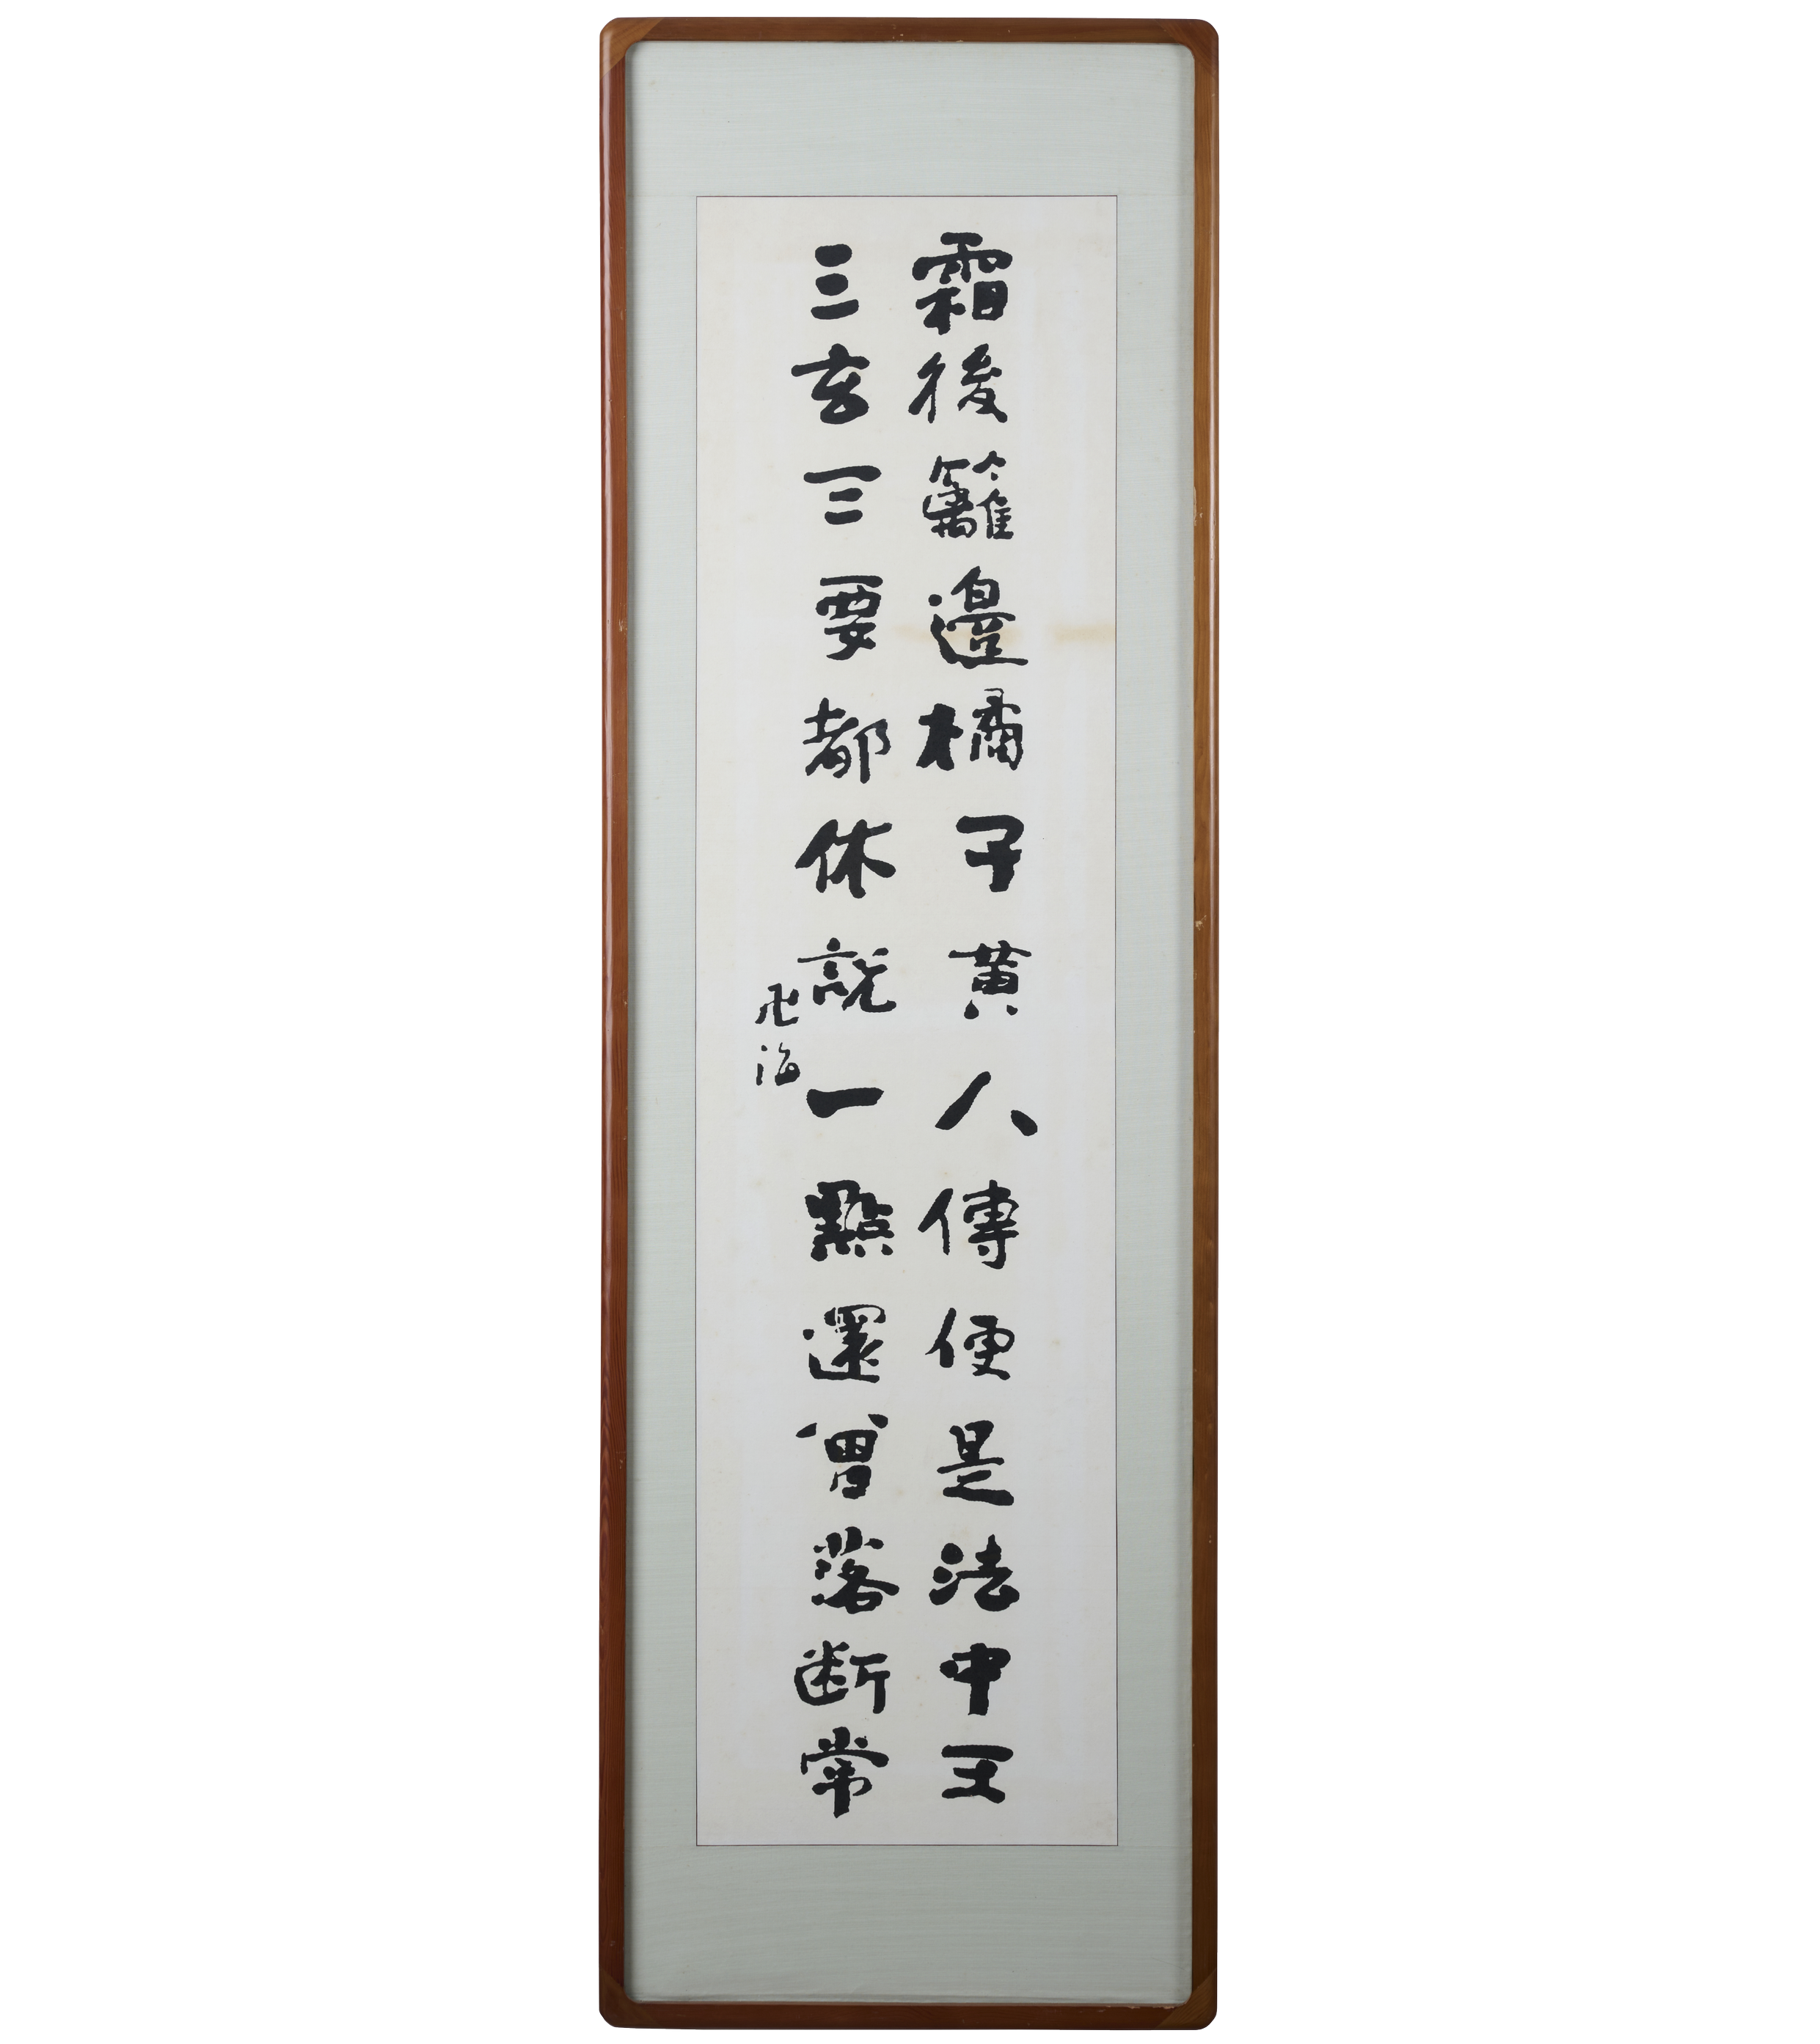 霜後籬邊橘子黄人傳便是法中王
三玄三要都休説一點還曾落断常
卍海